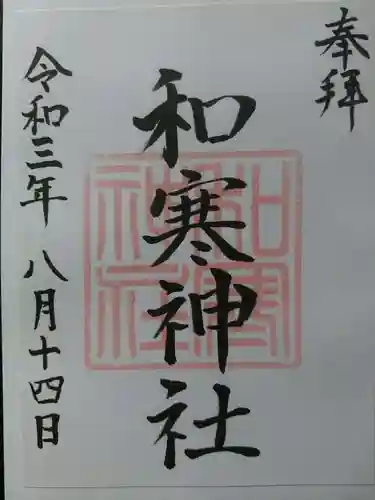 奉拝
和寒神社
令和三年 八月十四日
和寒神社